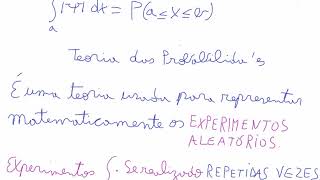 ∫ dx = P(a ≤ X ≤ b)
a
Teoria das Probabilida's
É uma teoria usada para representar
matematicamente os EXPERIMENTOS
ALEATÓRIOS.
Experimentos Se realizado REPETIDAS VEZES